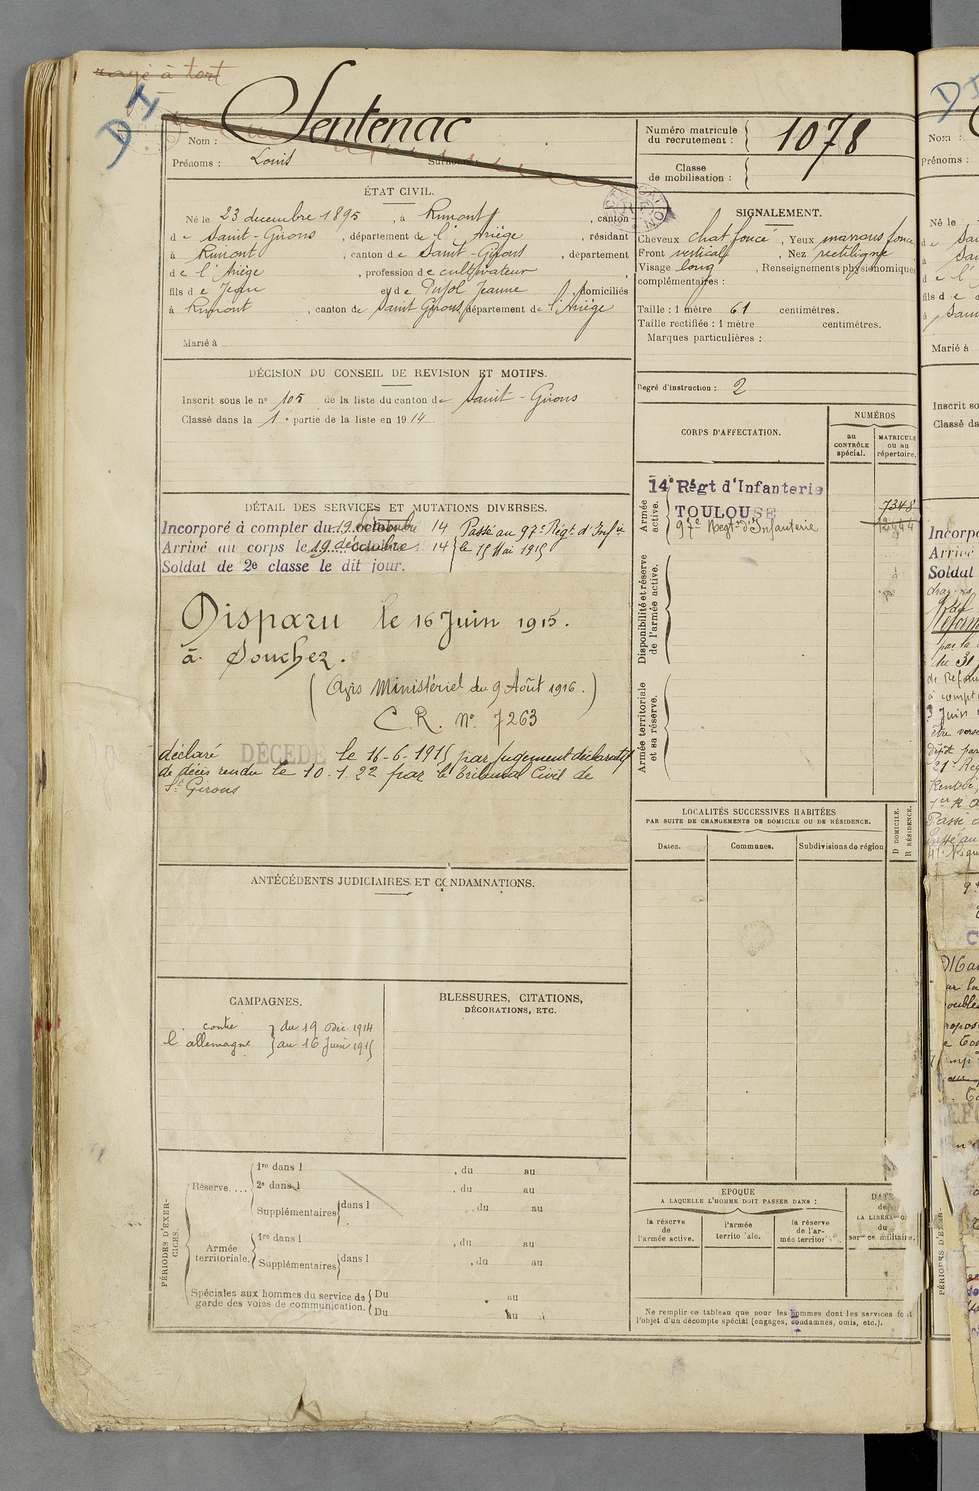 rayé à tort
DI
Nom : Sentenac
Prénoms : Louis Surnoms :
Numéro matricule du recrutement : 1078
Classe de mobilisation :
ÉTAT CIVIL.
Né le 23 decembre 1895, à Rimont, canton
de Saint-Girons, département de l'Ariège, résidant
à Rimont, canton de Saint-Girons, département
de l'Ariège, profession de cultivateur,
fils de Jean et de Pujol Jeanne, domiciliés
à Rimont, canton de Saint Girons département de l'Ariège
Marié à
SIGNALEMENT.
Cheveux chat foncé, Yeux marrons foncé
Front vertical, Nez rectiligne
Visage long, Renseignements physionomiques
complémentaires :
Taille : 1 mètre 61 centimètres.
Taille rectifiée : 1 mètre centimètres.
Marques particulières :
Degré d'instruction : 2
DÉCISION DU CONSEIL DE REVISION ET MOTIFS.
Inscrit sous le n° 105 de la liste du canton de Saint-Girons
Classé dans la 1e partie de la liste en 1914
CORPS D'AFFECTATION.
NUMÉROS
au CONTRÔLE spécial.
MATRICULE ou au répertoire.
Armée active.
14e Régt d'Infanterie
TOULOUSE
97e Régt d'Infanterie
7348
Disponibilité et réserve de l'armée active.
Armée territoriale et sa réserve.
DÉTAIL DES SERVICES ET MUTATIONS DIVERSES.
Incorporé à compter du 19 décembre 14
Arrivé au corps le 19 décembre 14
Soldat de 2e classe le dit jour.
Passé au 97e Régt d'Infie
le 15 Mai 1915
Disparu le 16 Juin 1915.
à Souchez.
(Avis Ministériel du 9 Août 1916.)
C R. N° 7263
déclaré DÉCÉDÉ le 16-6-1915 par jugement déclaratif
de décès rendu le 10.1.22 par le Tribunal Civil de
St Girons
LOCALITÉS SUCCESSIVES HABITÉES
PAR SUITE DE CHANGEMENTS DE DOMICILE OU DE RÉSIDENCE.
Dates. Communes. Subdivisions de région
D DOMICILE.
R RÉSIDENCE.
ANTÉCÉDENTS JUDICIAIRES ET CONDAMNATIONS.
CAMPAGNES.
contre l'allemagne
du 19 Déc. 1914
au 16 Juin 1915
BLESSURES, CITATIONS,
DÉCORATIONS, ETC.
PÉRIODES D'EXERCICES.
Réserve....
1re dans l , du au
2e dans l , du au
Supplémentaires dans l , du au
Armée territoriale.
1re dans l , du au
Supplémentaires dans l , du au
Spéciales aux hommes du service de garde des voies de communication.
Du au
Du au
EPOQUE
A LAQUELLE L'HOMME DOIT PASSER DANS :
la réserve de l'armée active.
l'armée territoriale.
la réserve de l'armée territor
DATE de LA LIBÉRATION du service militaire.
Ne remplir ce tableau que pour les hommes dont les services font
l'objet d'un décompte spécial (engagés, condamnés, omis, etc.).